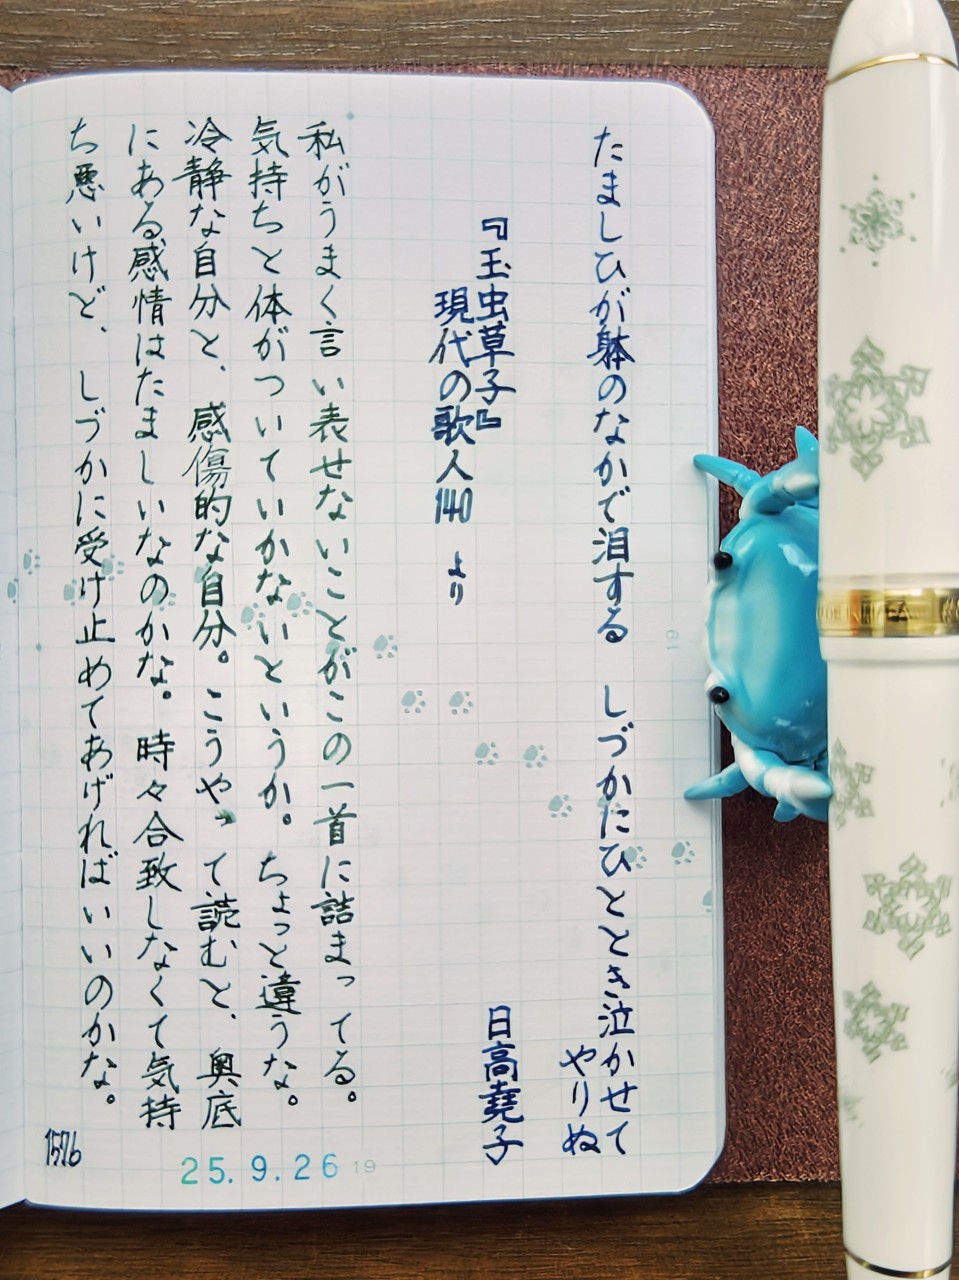 たましひが躰のなかで泪する しづかにひととき泣かせて
やりぬ
『玉虫草子』
現代の歌人140 より
日高堯子
私がうまく言い表せないことがこの一首に詰まってる。
気持ちと体がついていかないというか。ちょっと違うな。
冷静な自分と、感傷的な自分。こうやって読むと、奥底
にある感情はたましいなのかな。時々合致しなくて気持
ち悪いけど、しづかに受け止めてあげればいいのかな。
1576
25.9.26
19